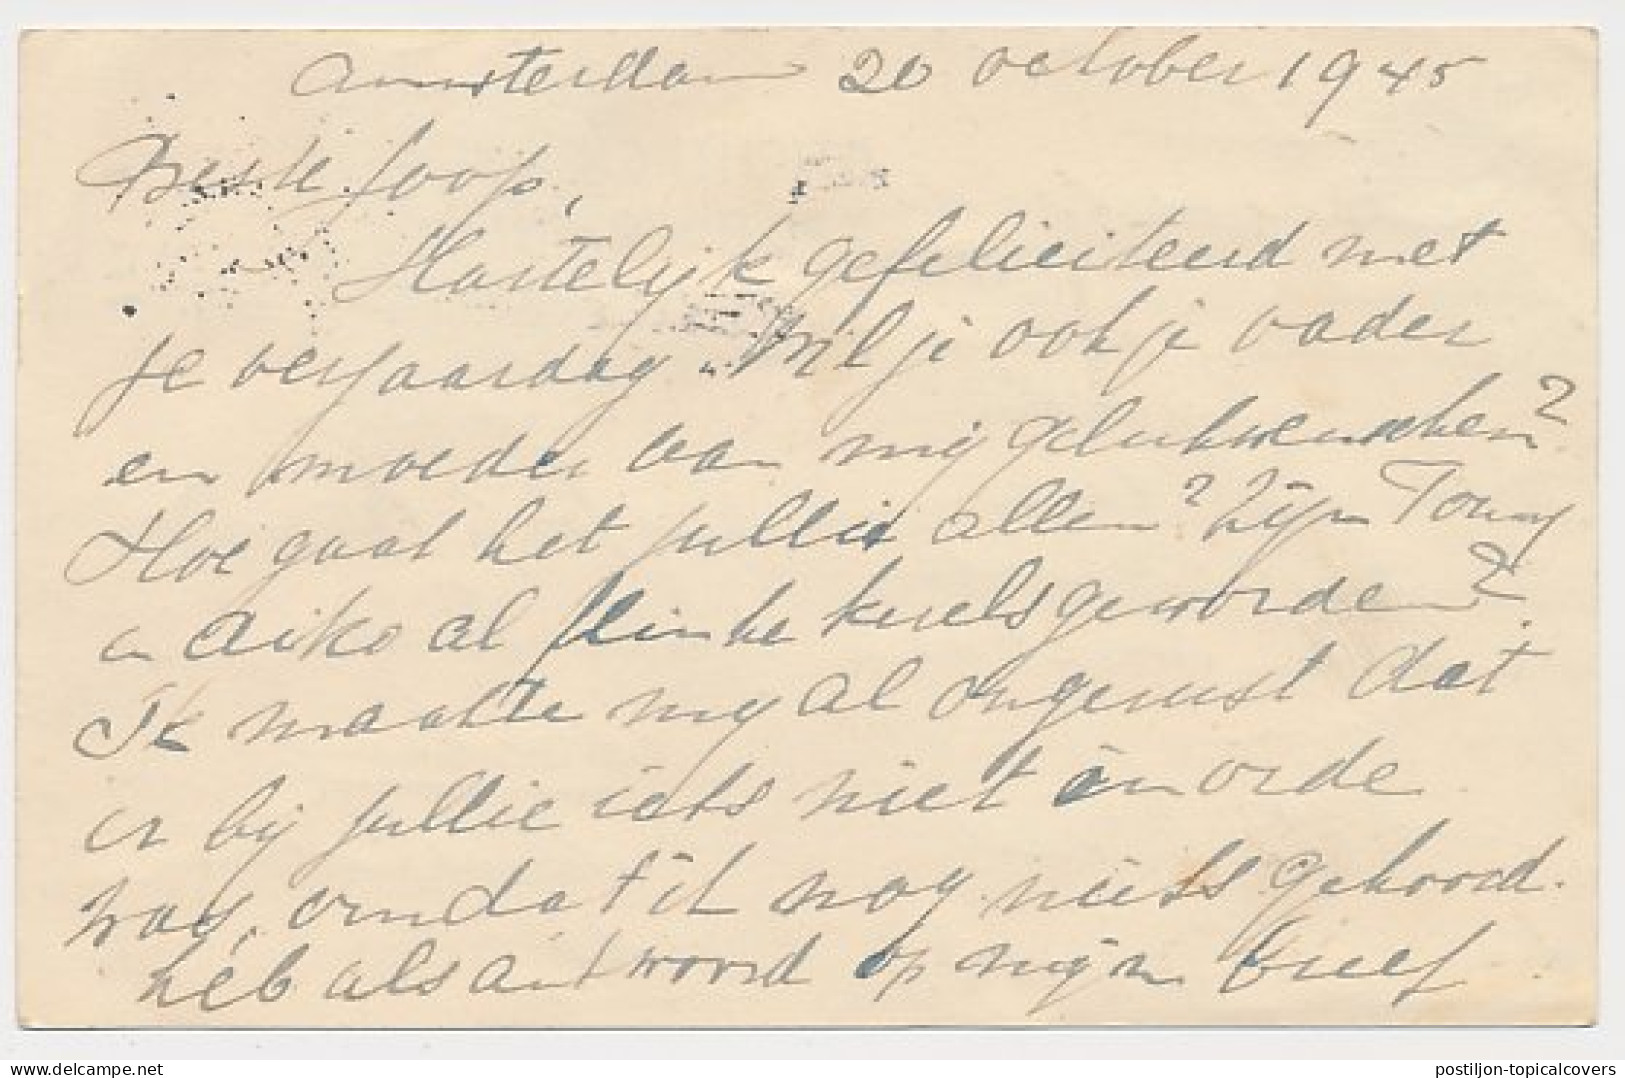 Amsterdam 20 october 1945
Beste Joop,
Hartelijk gefeliciteerd met
je verjaardag. Wil je ook je vader
en moeder van mij gelukwenschen?
Hoe gaat het jullie allen? Zijn Tonny
en Aiko al flinke kerels geworden?
Ik maakte mij al ongerust dat
er bij jullie iets niet in orde
was, omdat ik nog niets gehoord
heb als antwoord op mijn brief
delcampe.net
postiljon-topicalcovers